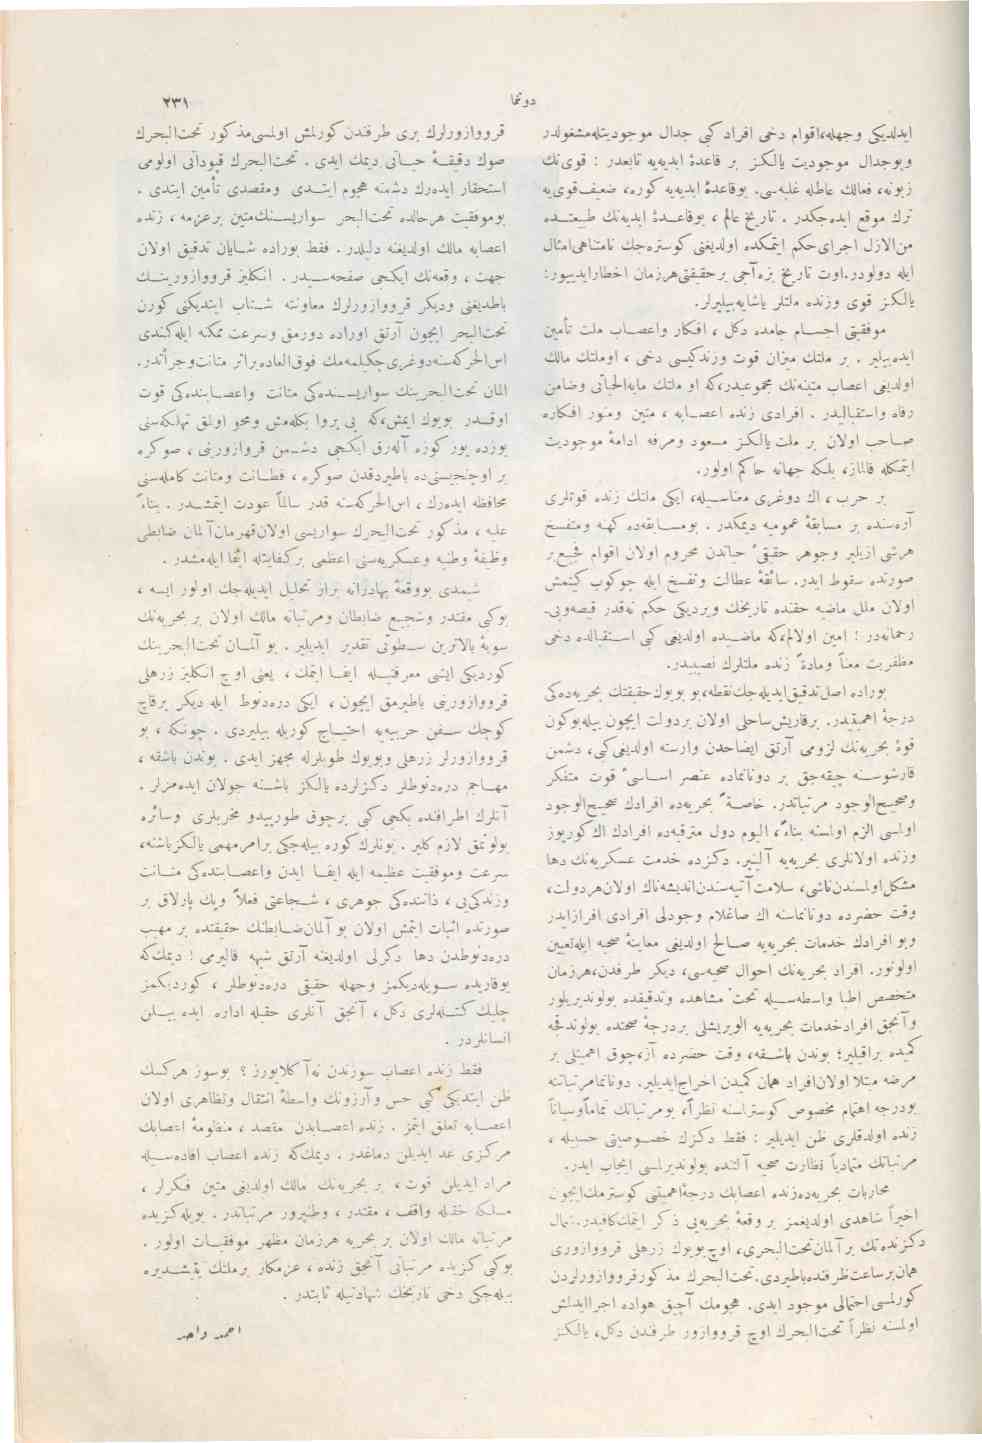 دوننما
٢٣١
ایدلدیکی وجهله، اقوام دخی افراد کبی جدال موجودیتله مشغولدر
وبوجدال موجودیت یالکز بر قاعدهٔ ابدیه‌یه تابعدر : قوی‌نك
زبونه، فعالك عاطله غلبه‌سی. بوقاعدهٔ ابدیه‌یه کوره، ضعیف قوی‌یه
ترك موقع ایده‌جکدر . تاریخ عالم ، بوقاعدهٔ ابدیه‌نك طبیعتده
من‌الازل اجرای حکم ایتمکده اولدیغنی کوستره‌جك نامتناهی امثال
ایله دولودر. اوت تاریخ بزه آجی بر حقیقتی هرزمان اخطار ایدییور:
یالکز قوی وزنده ملتلر یاشایه‌بیلیرلر.
موفقیتی اجسام جامده دکل ، افکار واعصاب ملت تأمین
ایده‌بیلیر . بر ملتك میزان قوت وزندکیسی دخی ، اوملتك مالك
اولدیغی اعصاب متینه‌نك مجموعیدر، که او ملتك مابه‌الحیاتی وضامن
رفاه واستقبالیدر . افرادی زنده اعصابه ، متین ومنور افکاره
صاحب اولان بر ملت یالکز مسعود ومرفه ادامهٔ موجودیت
ایتمکله قالماز، بلکه جهانه حاکم اولور.
بر حرب ، اك دوغری معناسیله، ایکی ملتك زنده قوتلری
آره‌سنده بر مسابقهٔ عمومیه دیمکدر . بومسابقه‌ده کهنه ومتفسخ
هرشی ازیلیر وجوهر حقیقیٔ حیاتدن محروم اولان اقوام فجیع بر
صورتده سقوط ایدر. سائقهٔ عطالت وتفسخ ایله چوکوب کیتمش
اولان ملل ماضیه حقنده تاریخك ویردیکی حکم نه‌قدر قیصه وبی‌
رحمانه‌در : امین اولالم، که ماضیده اولدیغی کبی استقبالده دخی
مظفریت معناً ومادةً زنده ملتلرك نصیبیدر.
بوراده اصل تدقیق ایدیله‌جك نقطه، بو بویوك حقیقتك بحریه‌ده‌کی
درجهٔ اهمیتیدر. برقاریش ساحلی اولان بردولت ایچون بیله بوکون
قوهٔ بحریه‌نك لزومی آرتق ایضاحدن وارسته اولدیغی کبی، دشمن
قارشوسنه چیقه‌جق بر دوننماده عنصر اساسیٔ قوت متفکر
وصحیح‌الوجود مرتباتدر. خاصةً بحریه‌ده افرادك صحیح‌الوجود
اولمسی الزم اولمسنه بناءً، الیوم دول مترقیه‌ده افرادك اك کوربوز
وزنده اولانلری بحریه‌یه آلنیر. دکزده خدمت عسکریه‌نك دها
مشکل اولمسندن ناشی، سلامت آتیه‌سندن اندیشه‌ناك اولان هر دولت،
وقت حضرده دوننماسنه اك صاغلام وجودلی افرادی افراز ایدر
وبو افرادك خدمات بحریه‌یه صالح اولدیغی معاینهٔ صحیه ایله تعیین
اولونور. افراد بحریه‌نك احوال صحیه‌سی، دیگر طرفدن، هرزمان
متخصص اطبا واسطه‌سیله تحت مشاهده وتدقیقده بولوندیریلور
وآنجق افراد خدمات بحریه‌یه الویریشلی بر درجهٔ صحتده بولوندقجه
کمیده براقیلیر؛ بوندن باشقه، وقت حضرده آز، چوق اهمیتلی بر
مرضه مبتلا اولان افراد همان کمیدن اخراج ایدیلیر. دوننما مرتباتنه
بودرجه اهتمام مخصوص کوسترلسنه نظراً، بومرتباتك تماماً وسیاناً
زنده اولدقلری ظن ایدیلیر : فقط دکزك خصوصیتی حسبیله ،
مرتباتك متمادیاً نظارت صحیه آلتنده بولوندیرلمسی ایجاب ایدر.
محاربات بحریه‌ده زنده اعصابك درجهٔ اهمیتنی کوسترمك ایچون
اخیراً شاهدی اولدیغمز بر وقعهٔ بحریه‌یی ذکر ایتمك کافیدر. شمال
دکزنده‌تك بر آلمان تحت‌البحری، اوچ بویوك زرهلی قرووازوری
همان برساعت ظرفنده باطیردی. تحت‌البحرك مذکور قرووازورلردن
کورلمسی احتمالی موجود ایدی. هجومك آچیق هواده اجرا ایدلمش
اولمسنه نظراً تحت‌البحرك اوچ قرووازور طرفندن دکل، یالکز
قرووازورلرك بری طرفندن کورلمش اولمسی مذکور تحت‌البحرك
صوك دقیقهٔ حیاتی دیمك ایدی . تحت‌البحرك قپودانی اولومی
استحقار ایده‌رك دشمنه هجوم ایتدی ومقصدی تأمین ایتدی .
بوموفقیت هرحالده تحت‌البحر سواریسنك متین بر عزمه ، زنده
اعصابه مالك اولدیغنه دلیلدر. فقط بوراده شایان تدقیق اولان
جهت ، وقعه‌نك ایکنجی صفحه‌سیدر . انکلیز قرووازورینك
باطدیغنی ودیکر قرووازورلرك معاونته شتاب ایتدیکنی کورن
تحت‌البحر ایچون آرتق اوراده دورمق وسرعت ممکنه ایله کندی
اس‌الحرکه‌سنه دوغری چکیلمه‌مك فوق‌العاده براثر متانت وجرأتدر.
المان تحت‌البحرینك سواریسنده‌کی متانت واعصابنده‌کی قوت
اوقدر بویوك ایمش، که بی پروا بکله‌مش ومحو اولمق تهلکه‌سنی
یوزده یوز کوزه آله‌رق ایکنجی دشمن قروازورینی ، صوکره
بر اوچنجیسنی‌ده باطیردقدن صوکره ، فطانت ومتانت کامله‌سنی
محافظه ایده‌رك ، اس‌الحرکه‌سنه قدر سالماً عودت ایتمشدر . بناءً
علیه ، مذکور تحت‌البحرك سواریسی اولان قهرمان آلمان ضابطی
وظیفهٔ وطنیه وعسکریه‌سنی اعظمی بر کفایتله ایفا ایله‌مشدر .
شیمدی بووقعهٔ بهادرانه براز تحلیل ایدیله‌جك اولور ایسه ،
بوکبی مقتدر وشجیع ضابطان ومرتباته مالك اولان بر بحریه‌نك
سویهٔ بالاترین سطوتی تقدیر ایدیلیر . بو آلمان تحت‌البحرینك
کوردیکی ایشی معرفتیله ایفا ایتمك ، یعنی اوچ انکلیز زرهلی
قرووازورینی باطیرمق ایچون ، ایکی دره‌دنوط ایله دیکر برقاچ
کوچك سفن حربیه‌یه احتیاج کوریله بیلیردی . چونکه ، بو
قرووازورلر زرهلی وبویوك طوپلرله مجهز ایدی . بوندن باشقه ،
مهاجم دره‌دنوطلر دکزلرده یالکز باشنه جولان ایده‌مزلر .
آنلرك اطرافنده بکجی کبی برچوق طورپیدو مخربلری وسائره
بولونمق لازم کلیر . بونلرك کوره بیله‌جکی برامر مهمی یالکز باشنه،
سرعت وموفقیت عظیمه ایله ایفا ایدن واعصابنده‌کی متانت
وزندکی‌یی ، ذاتنده‌کی جوهری ، شجاعتی فعلاً وپك پارلاق بر
صورتده اثبات ایتمش اولان بو آلمان ضابطنك حقیقتده بر مهیب
دره‌دنوطدن دها دکرلی اولدیغنه آرتق شبهه قالیرمی ! دیمك‌که
یوقاریده سویله‌دیکمز وجهله حقیقی دره‌دنوطلر ، کوردیکمز
چلیك کتله‌لری دکل ، آنجق آنلری حقیله اداره ایده بیلن
انسانلردر .
فقط زنده اعصاب سوزندن نه آکلایورز ؟ بوسوز هرکسك
ظن ایتدیکی کبی حس وآرزونك واسطهٔ انتقال وتظاهری اولان
اعصابه تعلق ایتمز . زنده اعصابدن مقصد ، منظومهٔ اعصابك
مرکزی عد ایدیلن دماغدر . دیمك‌که زنده اعصاب افاده‌سیله
مراد ایدیلن قوت ، بر بحریه‌نك مالك اولدیغی متین فکرلر ،
مسلکه حقیله واقف ، مقتدر ، وطنپرور مرتباتدر . بویله کزیده
مرتباته مالك اولان بر بحریه هرزمان مظهر موفقیات اولور .
بوکبی کزیده مرتباتی آنجق زنده ، عزمکار بر ملتك یتیشدیره
بیله‌جکی دخی تاریخك شهادتیله ثابتدر .
احمد واحد